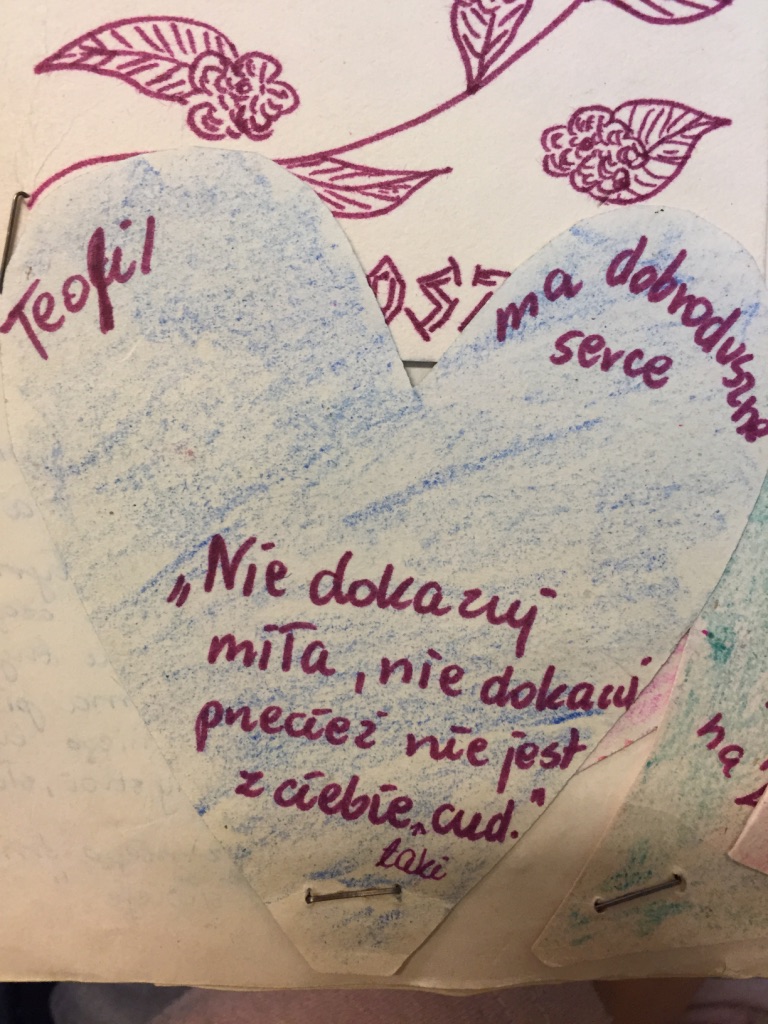 Teofil
OST
ma dobroduszne
serce
„Nie dokazuj
miła, nie dokazuj
przecież nie jest
z ciebie „cud."
taki
na